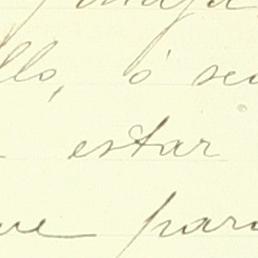 llo, ó se
estar
ue para